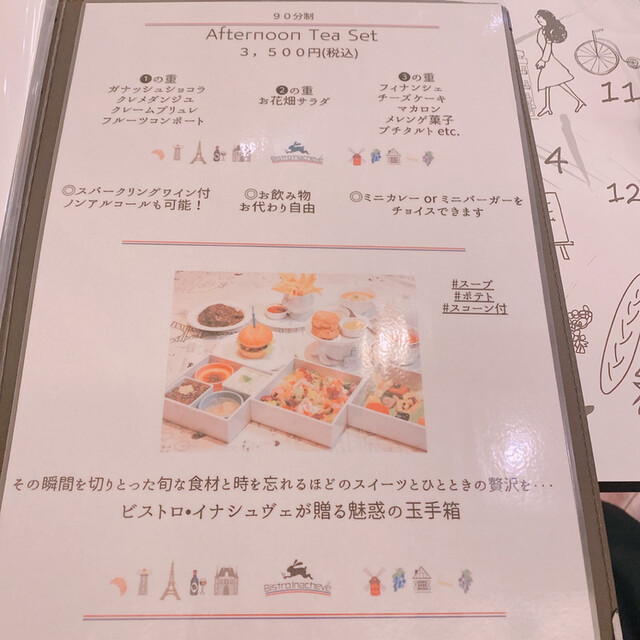 90分制
Afternoon Tea Set
3,500円(税込)
❶の重
ガナッシュショコラ
クレメダンジュ
クレームブリュレ
フルーツコンポート
❷の重
お花畑サラダ
❸の重
フィナンシェ
チーズケーキ
マカロン
メレンゲ菓子
プチタルト etc.
◎スパークリングワイン付
ノンアルコールも可能!
◎お飲み物
お代わり自由
◎ミニカレー or ミニバーガーを
チョイスできます
#スープ
#ポテト
#スコーン付
その瞬間を切りとった旬な食材と時を忘れるほどのスイーツとひとときの贅沢を・・・
ビストロ•イナシュヴェが贈る魅惑の玉手箱
Bistro Inachevé
11
4
12